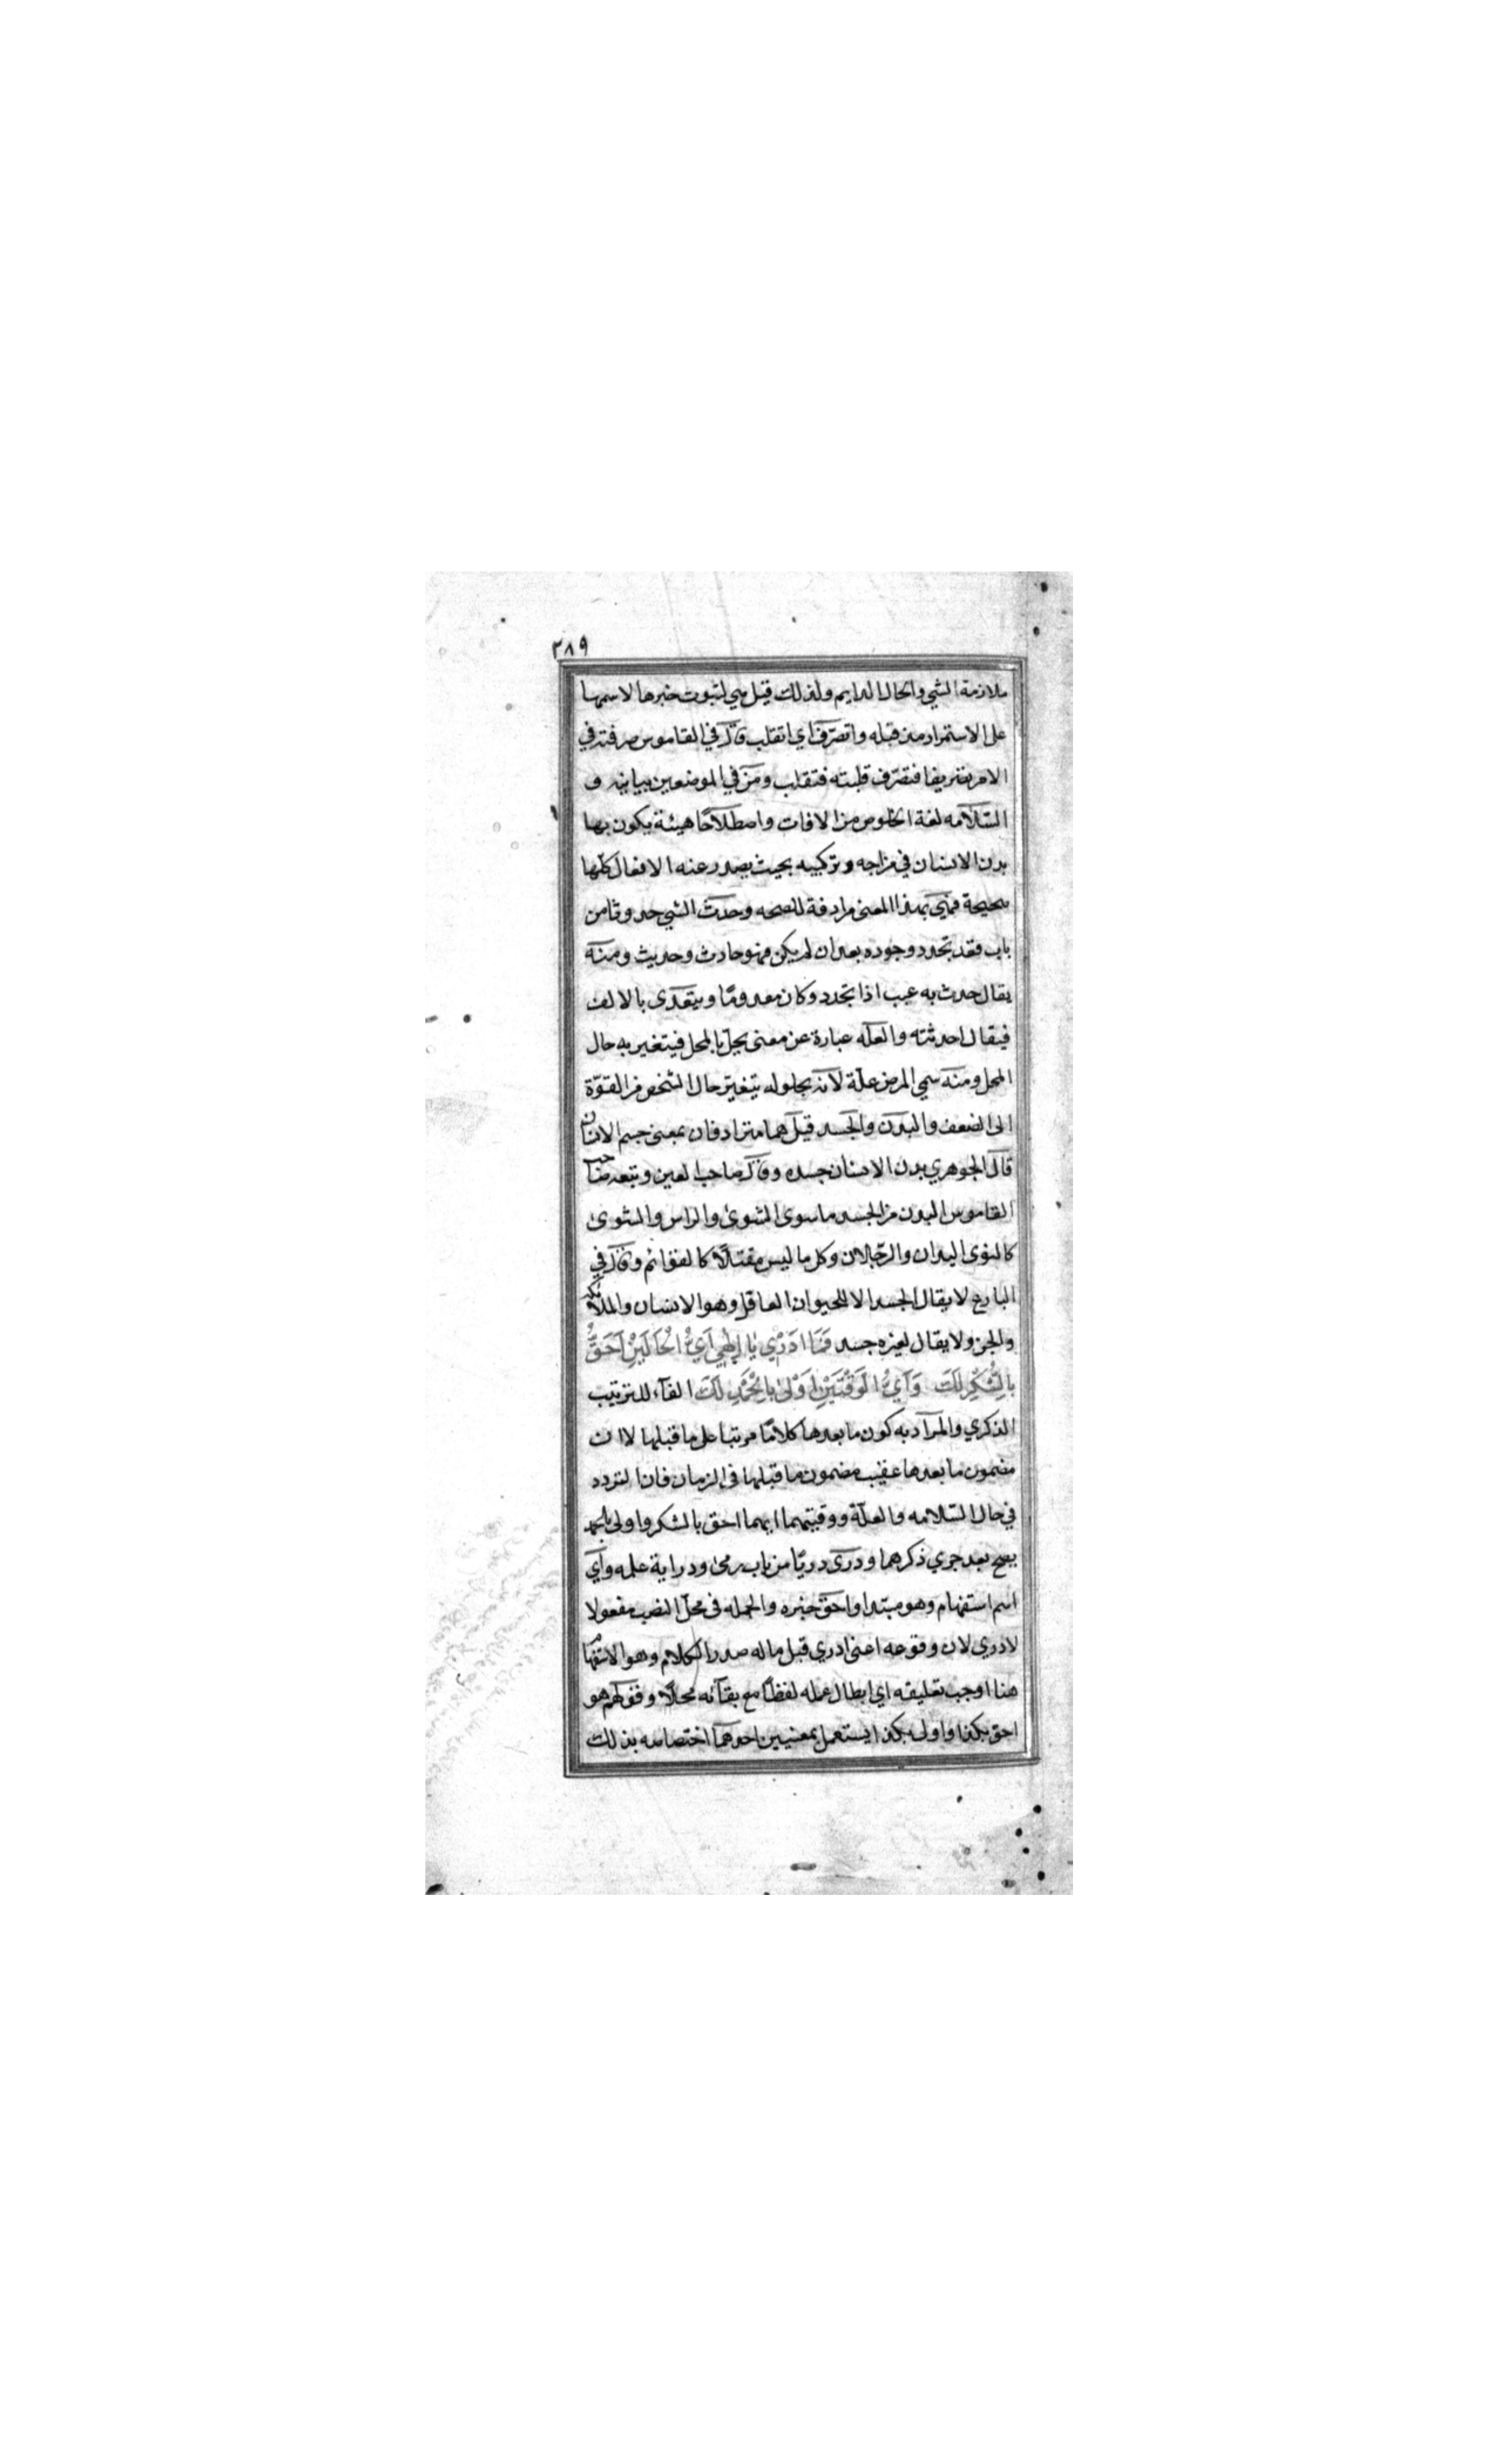 ٣٨٩
ملازمة الشي والحال الدايم ولذلك قيل هي لثبوت خبرها لاسمها
على الاستمرار مذ قبله واتصرف اي اتقلب قال في القاموس صرفته في
الامر تصريفا فتصرف قلبته فتقلب ومن في الموضعين بيانيه و
السّلامه لغة الخلوص من الافات واصطلاحًا هيئة يكون بها
بدن الانسان في مزاجه وتركيبه بحيث يصدر عنه الافعال كلها
صحيحة فهي بهذا المعنى مرادفة للصحه وحدث الشي حدوثا من
باب قعد تجدد وجوده بعد ان لم يكن فهو حادث وحديث ومنه
يقال حدث به عيب اذا تجدد وكان معدومًا ويتعدى بالالف
فيقال احدثته والعلّه عبارة عن معنى يحل بالمحل فيتغير به حال
المحل ومنه سمي المرض علّة لانه بحلوله يتغيّر حال الشخص من القوّة
الى الضعف والبدن والجسد قيل هما مترادفان بمعنى جسم الانسان
قال الجوهري بدن الانسان جسده وقال صاحب العين وتبعه صاحب
القاموس البدن من الجسد ما سوى الشوى والراس والشوى
كالنوى اليدان والرّجلان وكل ما ليس مقتلًا كالقوائم وقال في
البارع لا يقال الجسد الا للحيوان العاقل وهو الانسان والملائكه
والجن ولا يقال لغيره جسد فَمَا اَدْرِي يٰا اِلٰهِي اَيُّ الْحَالَيْنِ اَحَقُّ
بِالشُّكْرِ لَكَ وَاَيُّ الْوَقْتَيْنِ اَوْلىٰ بِالْحَمْدِ لَكَ الفآء للترتيب
الذكري والمراد به كون ما بعدها كلامًا مرتبا على ما قبلها لا ان
مضمون ما بعدها عقيب مضمون ما قبلها في الزمان فان التردد
في حال السّلامه والعلّة ووقيتهما ايهما احق بالشكر واولى بالحمد
يصح بعد جري ذكرهما ودرى دريًا من باب رمى ودراية علمه واي
اسم استفهام وهو مبتدا واحق خبره والجمله في محل النصب مفعولا
لادري لان وقوعه اعنى ادري قبل ما له صدر الكلام وهو الاستفهام
هنا اوجب تعليقه اي ابطال عمله لفظًا مع بقآئه محلًا وقولهم هو
احق بكذا واولى بكذا يستعمل بمعنيين احدهما اختصاصه بذلك